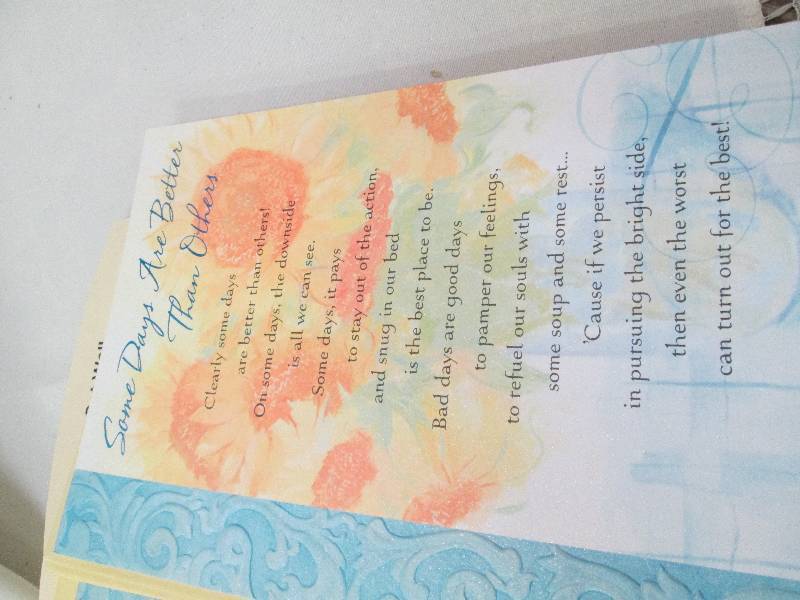 Some Days Are Better
Than Others
Clearly some days
are better than others!
On some days, the downside
is all we can see.
Some days, it pays
to stay out of the action,
and snug in our bed
is the best place to be.
Bad days are good days
to pamper our feelings,
to refuel our souls with
some soup and some rest...
'Cause if we persist
in pursuing the bright side,
then even the worst
can turn out for the best!